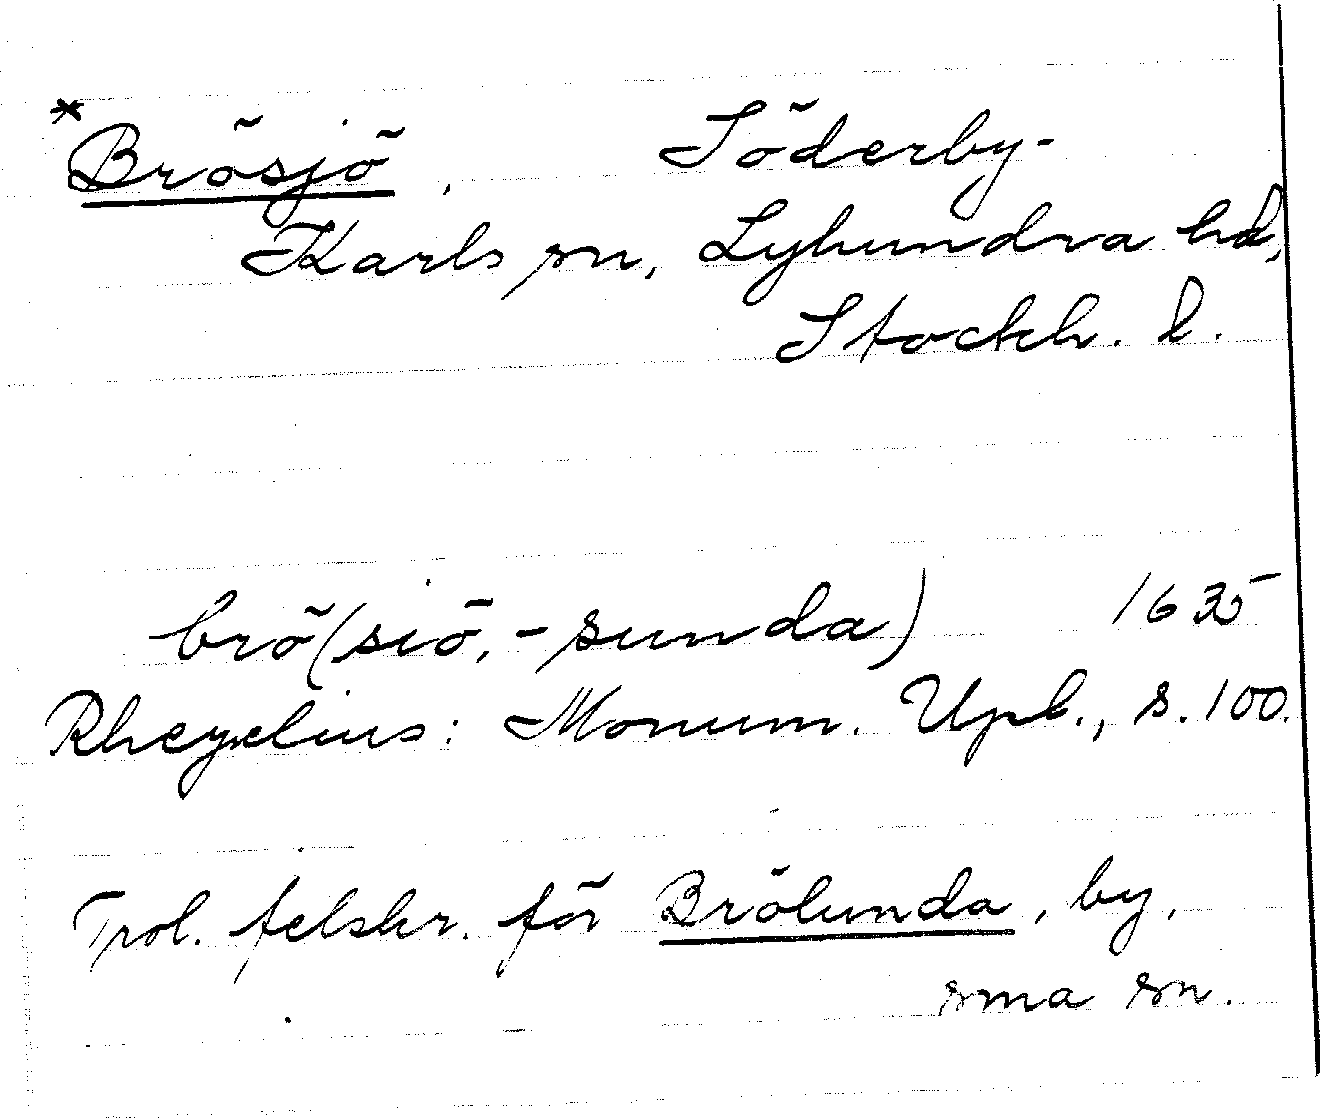 *Brösjö, Söderby-
Karls sn, Lyhundra hd,
Stockh. l.
brö(siö, -sunda) 1635
Rhezelius: Monum. Upl., s. 100.
Trol. felskr. för Brölunda, by,
sma sn.